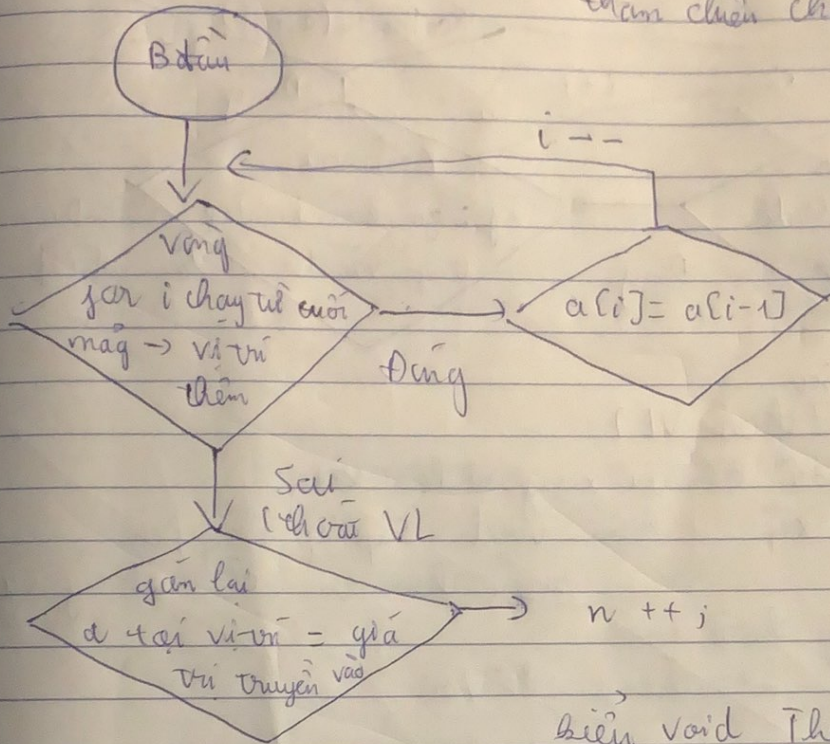 tham chiếu Ch
B đầu
i--
Vòng
for i chạy từ cuối
mảg -> vị trí
thêm
a[i]= a[i-1]
Đúng
Sai
(thoát VL
gán lại
a tại vị trí = giá
trị truyền vào
n ++;
Biến void Th